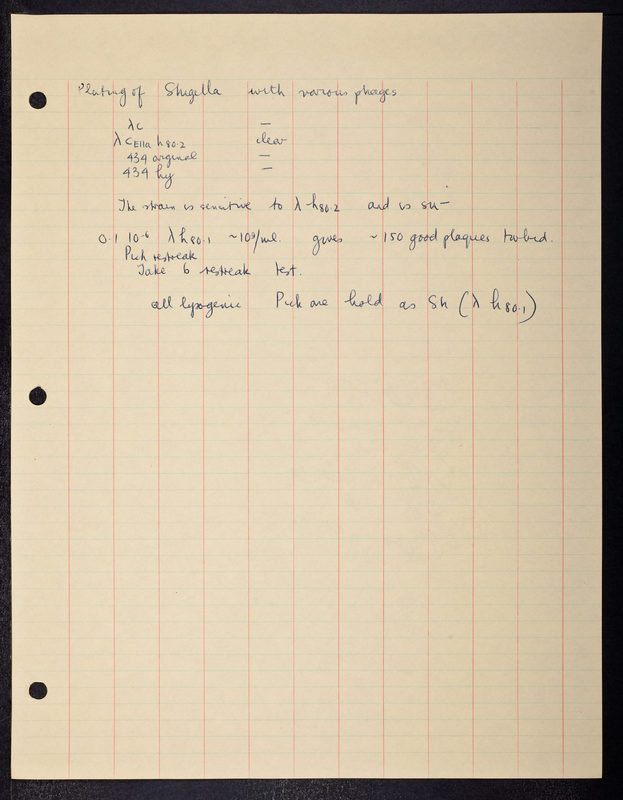 Plating of Shigella with various phages
λc –
λ c E11a h 80.2 clear
434 original –
434 hy –
The strain is sensitive to λ h 80.2 and is su⁻
0.1 10⁻⁶ λ h 80.1 ~10⁹/ml. gives ~150 good plaques turbid.
Pick restreak
Take 6 restreak test.
all lysogenic Pick one hold as Sh (λ h 80.1)